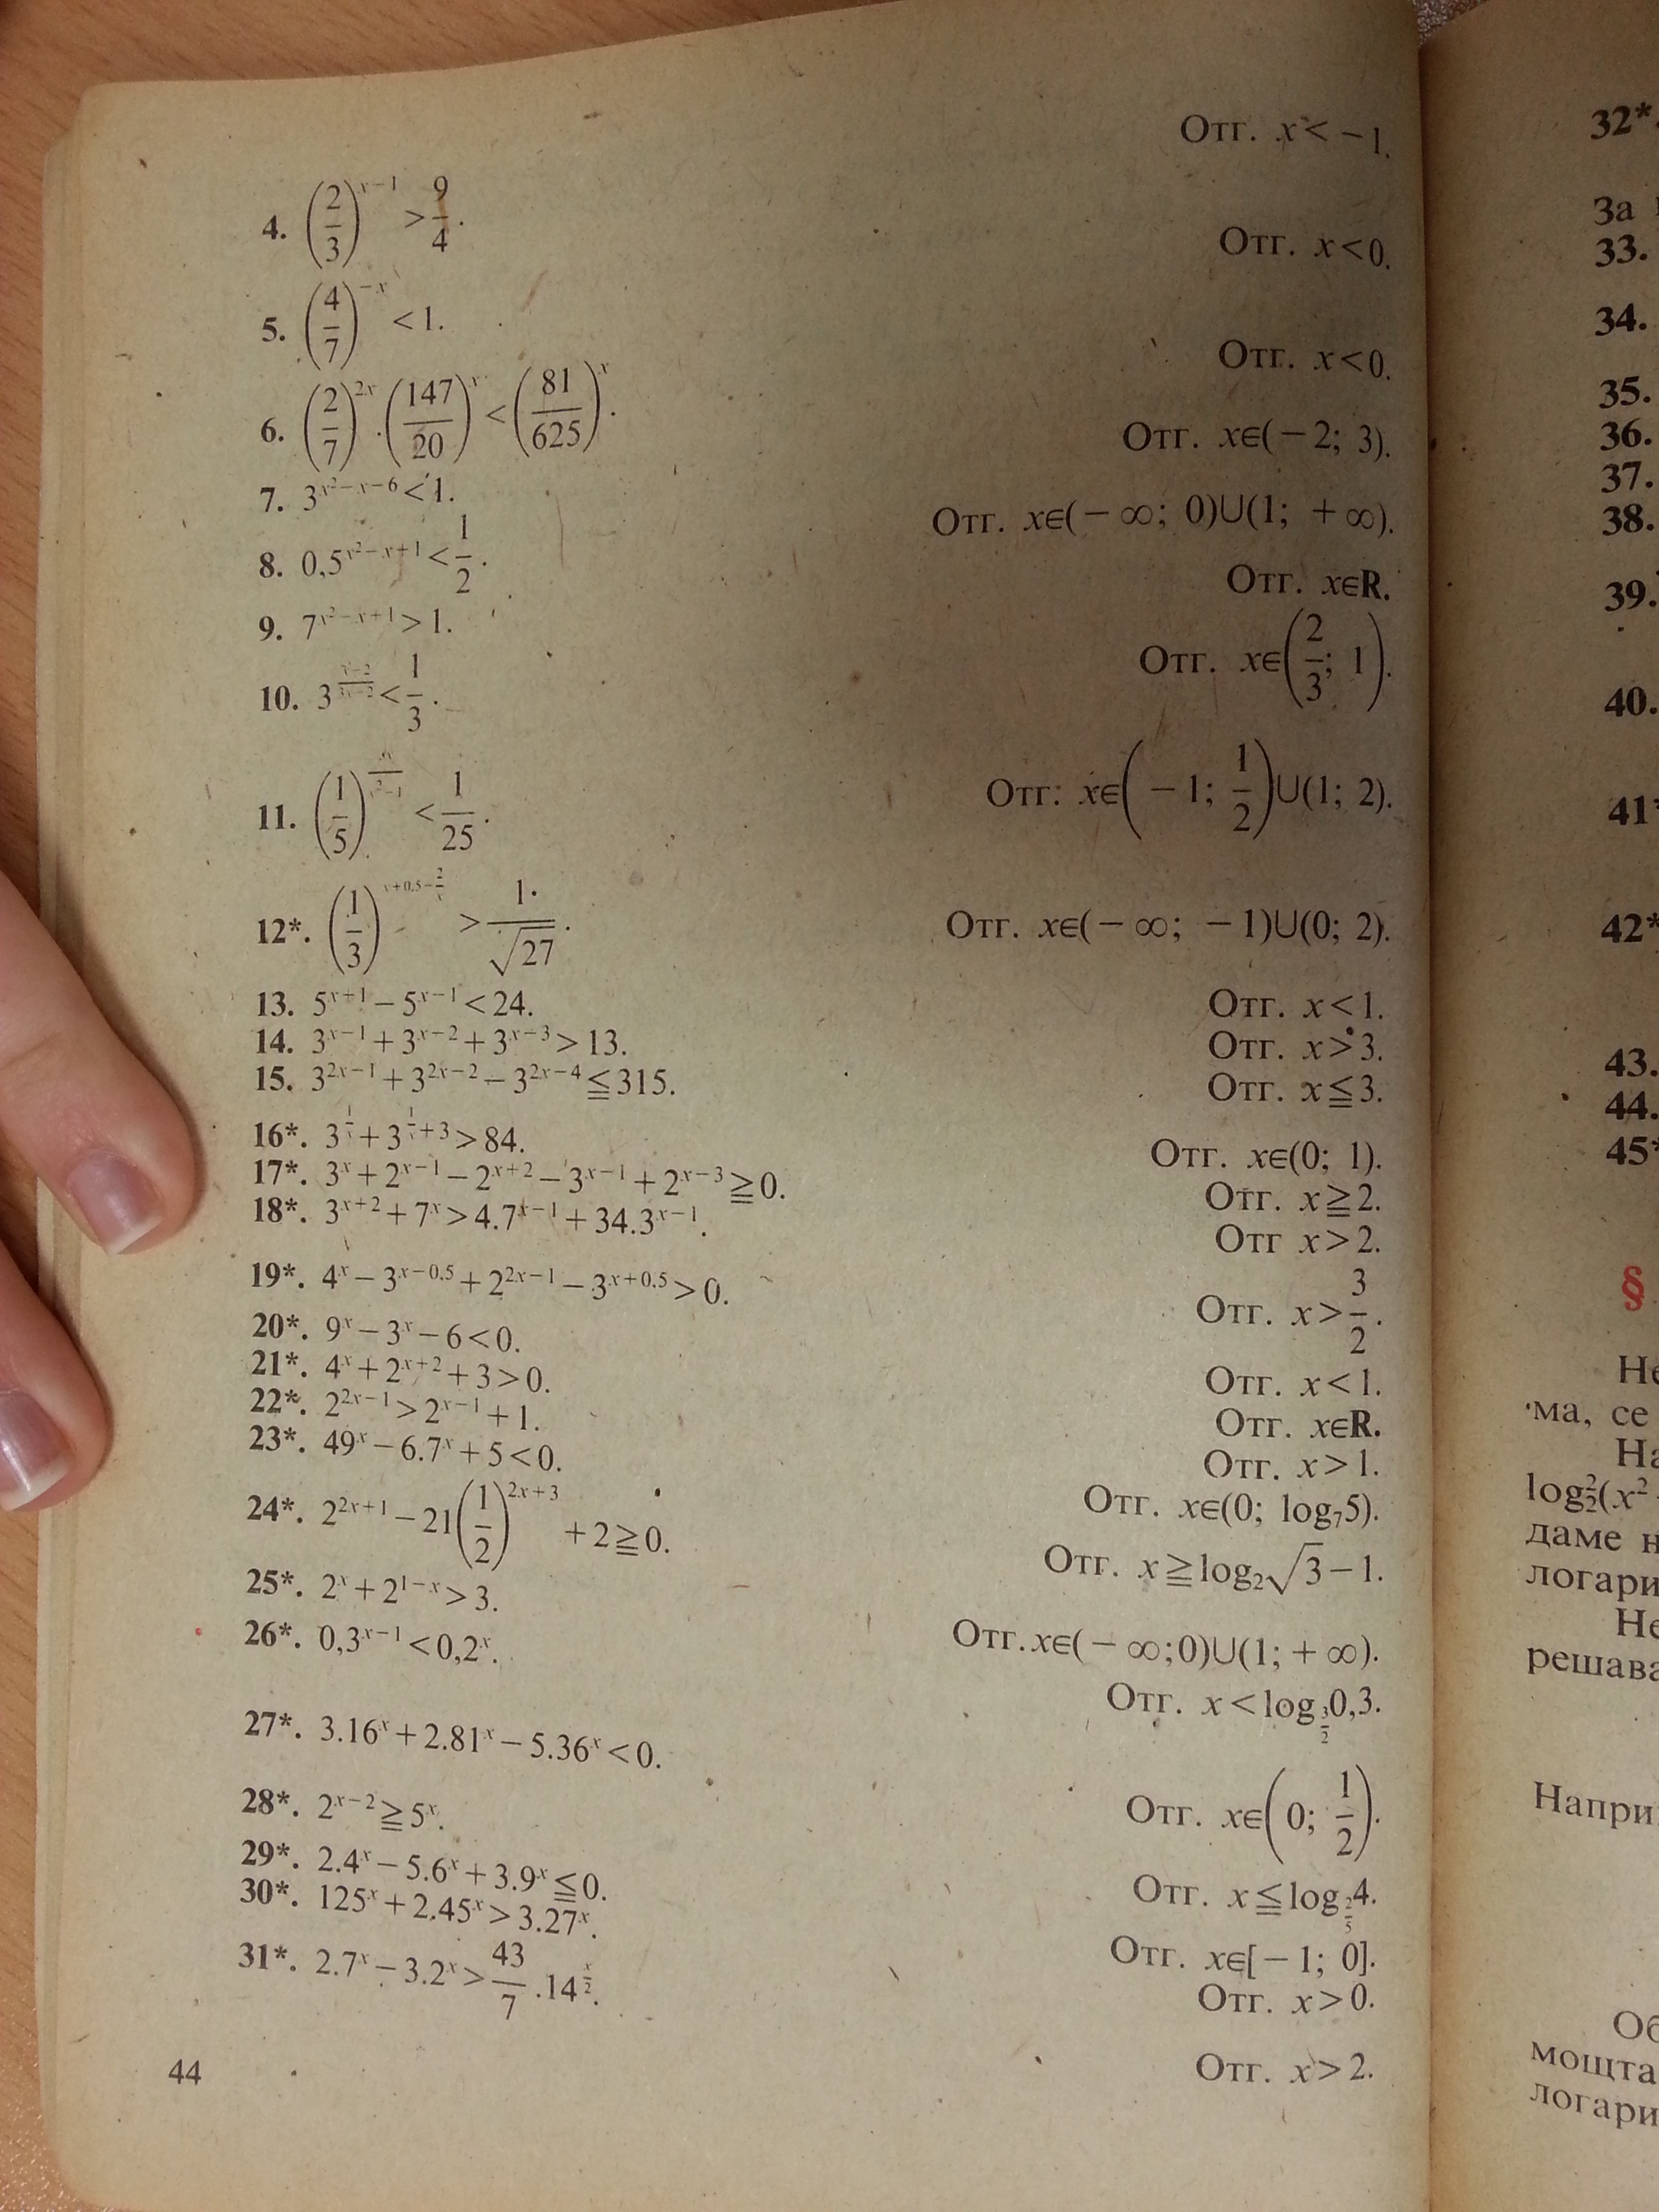 4. (2/3)^(x−1) > 9/4. Отг. x < −1.
5. (4/7)^(−x) < 1. Отг. x < 0.
6. (2/7)^(2x) . (147/20)^x < (81/625)^x. Отг. x < 0.
7. 3^(x²−x−6) < 1. Отг. x∈(−2; 3).
8. 0,5^(x²−x+1) < 1/2. Отг. x∈(−∞; 0)∪(1; +∞).
9. 7^(x²−x+1) > 1. Отг. x∈R.
10. 3^((x−2)/(3x−2)) < 1/3. Отг. x∈(2/3; 1).
11. (1/5) < 1/25. Отг: x∈(−1; 1/2)∪(1; 2).
12*. (1/3)^(x+0,5−2/x) > 1/√27. Отг. x∈(−∞; −1)∪(0; 2).
13. 5^(x+1) − 5^(x−1) < 24. Отг. x < 1.
14. 3^(x−1) + 3^(x−2) + 3^(x−3) > 13. Отг. x > 3.
15. 3^(2x−1) + 3^(2x−2) − 3^(2x−4) ≦ 315. Отг. x ≦ 3.
16*. 3^(1/x) + 3^(1/x+3) > 84. Отг. x∈(0; 1).
17*. 3^x + 2^(x−1) − 2^(x+2) − 3^(x−1) + 2^(x−3) ≧ 0. Отг. x ≧ 2.
18*. 3^(x+2) + 7^x > 4.7^(x−1) + 34.3^(x−1). Отг x > 2.
19*. 4^x − 3^(x−0,5) + 2^(2x−1) − 3^(x+0,5) > 0. Отг. x > 3/2.
20*. 9^x − 3^x − 6 < 0. Отг. x < 1.
21*. 4^x + 2^(x+2) + 3 > 0. Отг. x∈R.
22*. 2^(2x−1) > 2^(x−1) + 1. Отг. x > 1.
23*. 49^x − 6.7^x + 5 < 0. Отг. x∈(0; log₇5).
24*. 2^(2x+1) − 21(1/2)^(2x+3) + 2 ≧ 0. Отг. x ≧ log₂√3 − 1.
25*. 2^x + 2^(1−x) > 3. Отг. x∈(−∞;0)∪(1; +∞).
26*. 0,3^(x−1) < 0,2^x. Отг. x < log_(3/2) 0,3.
27*. 3.16^x + 2.81^x − 5.36^x < 0. Отг. x∈(0; 1/2).
28*. 2^(x−2) ≧ 5^x. Отг. x ≦ log_(2/5) 4.
29*. 2.4^x − 5.6^x + 3.9^x ≦ 0. Отг. x∈[−1; 0].
30*. 125^x + 2.45^x > 3.27^x. Отг. x > 0.
31*. 2.7^x − 3.2^x > 43/7 .14^(x/2). Отг. x > 2.
44
32*.
За
33.
34.
35.
36.
37.
38.
39.
40.
41*
42*
43.
44.
45*
§
ма, се
log₂²(x²
даме
решава